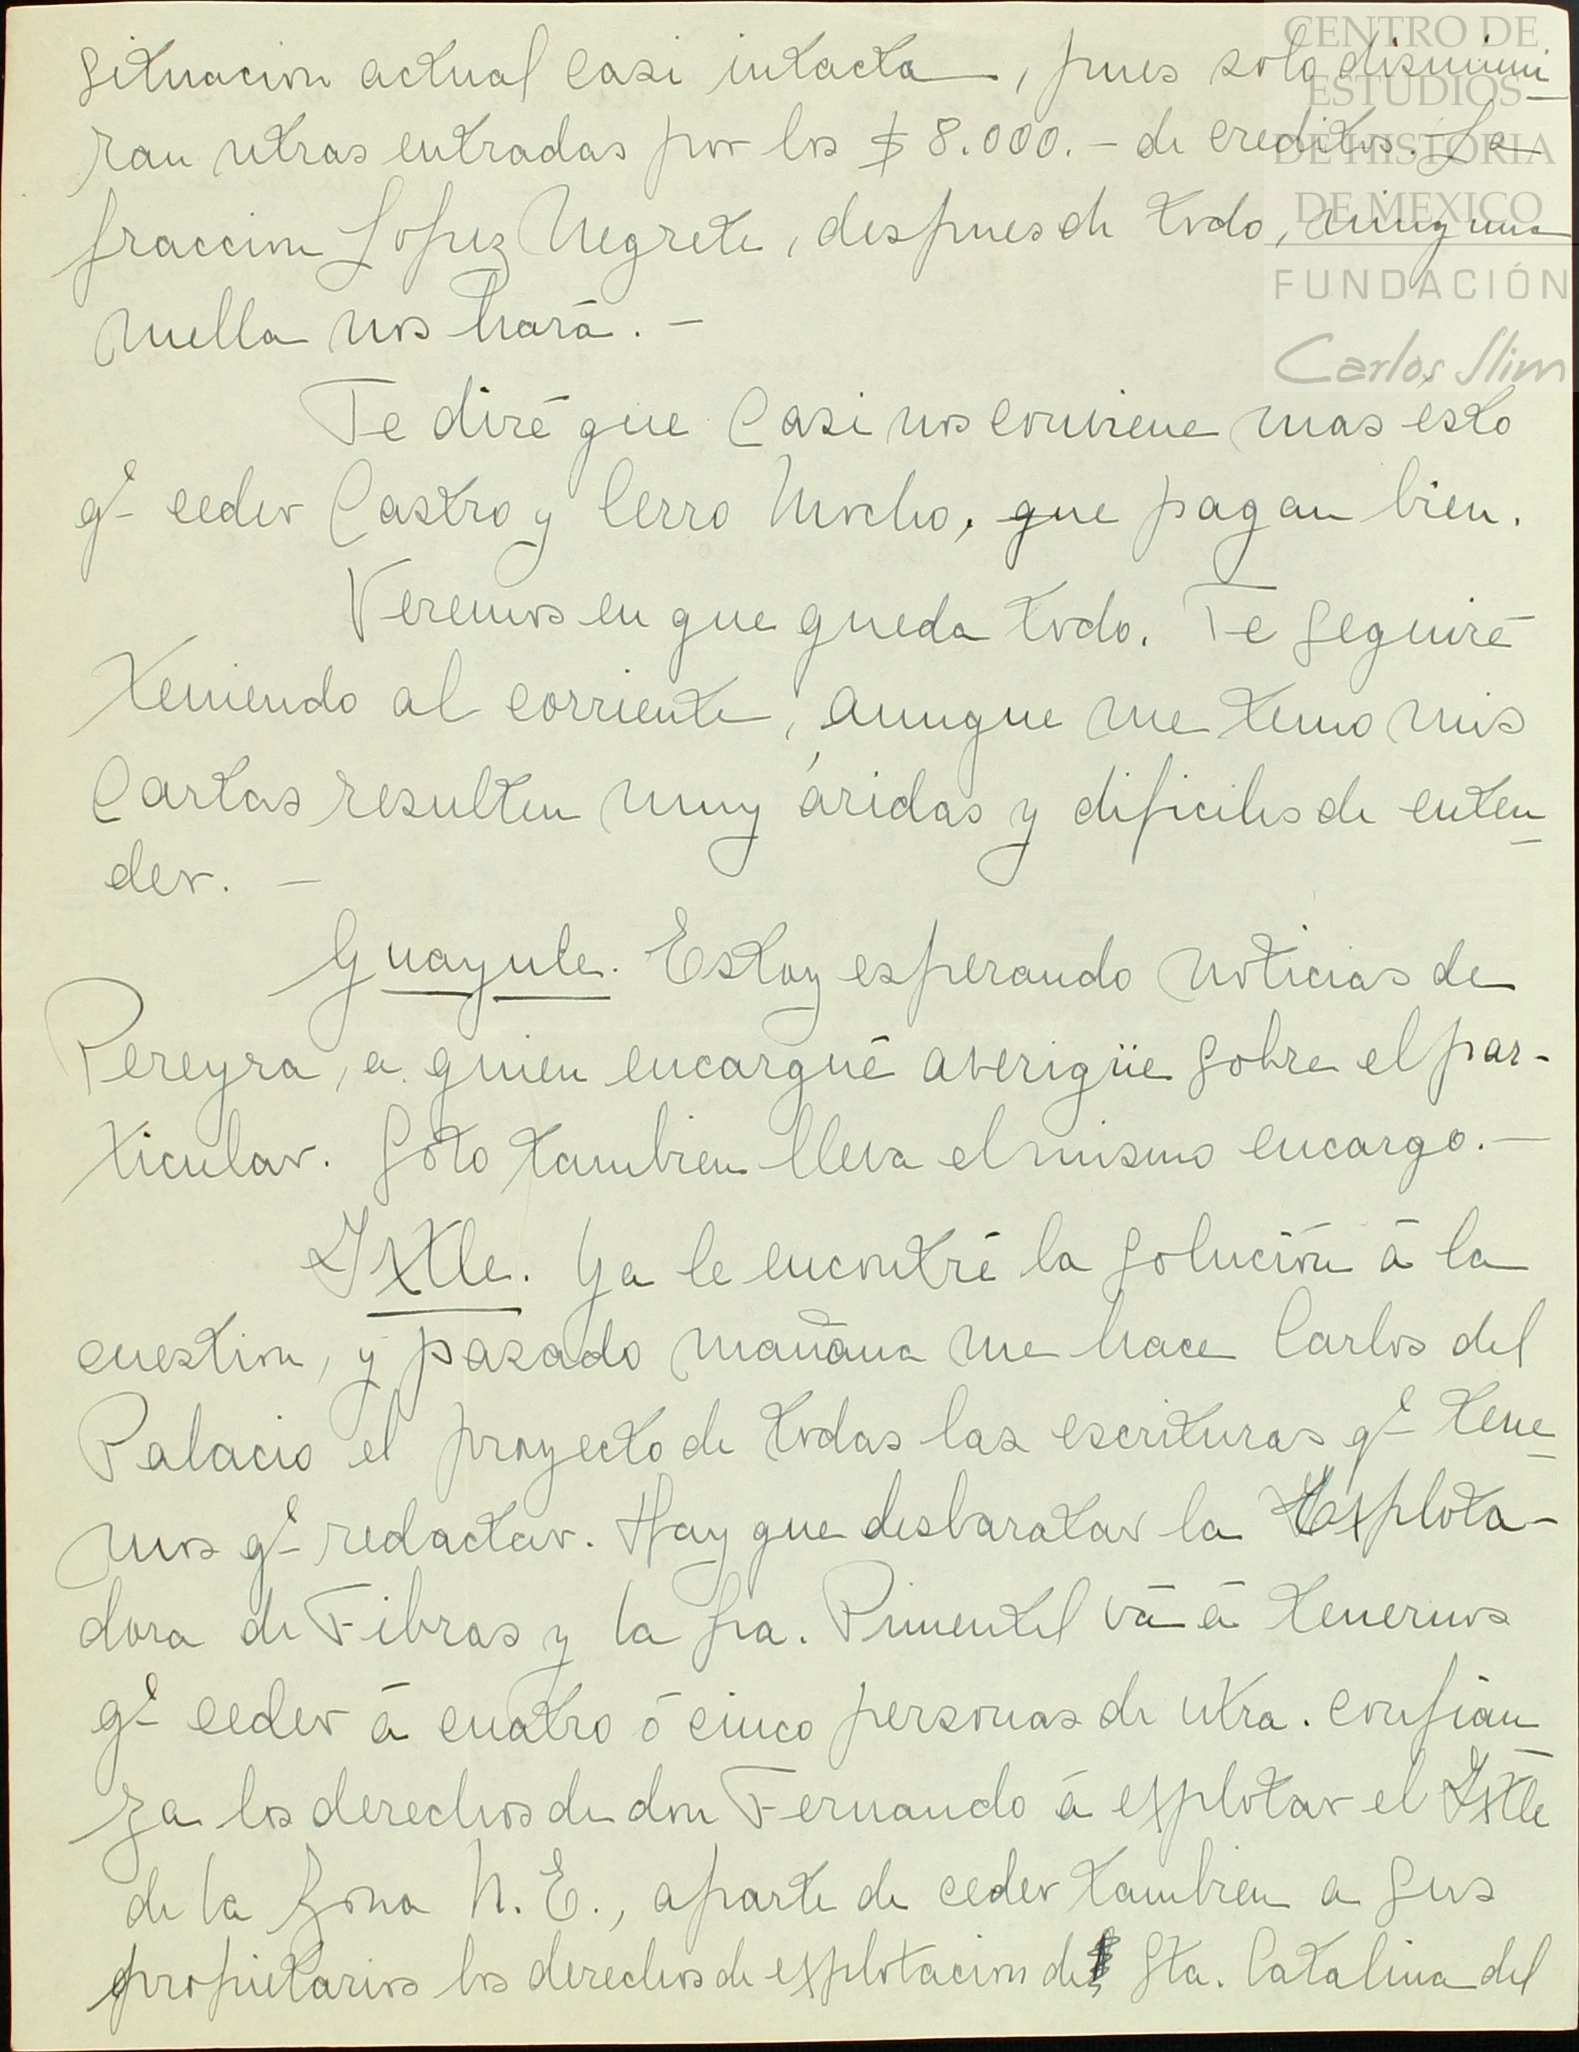 CENTRO DE
ESTUDIOS
DE HISTORIA
DE MEXICO
FUNDACIÓN
Carlos Slim
situacion actual casi intacta, pues solo disminui
ran ntras entradas por los $8.000.- de creditos. La
fraccion Lopez Negrete, despues de todo, ninguna
mella nos hará. -
Te diré que casi nos conviene mas ésto
qe ceder Castro y Cerro Mocho, que pagan bien.
Veremos en que queda todo. Te seguiré
teniendo al corriente, aunque me temo mis
cartas resulten muy áridas y dificiles de enten
der. -
Guayule. Estoy esperando noticias de
Pereyra, a quien encargué averigüe sobre el par-
ticular. Soto tambien lleva el mismo encargo. -
Ixtle. Ya le encontré la solución á la
cuestion, y pasado mañana me hace Carlos del
Palacio el proyecto de todas las escrituras qe tene
mos qe redactar. Hay que desbaratar la Explota-
dora de Fibras y la Sra. Pimentel vá á tenernos
qe ceder á cuatro ó cinco personas de ntra. confian
za los derechos de don Fernando á explotar el Ixtle
de la zona N.E., aparte de ceder tambien a sus
propietarios los derechos de explotacion de Sta. Catalina del